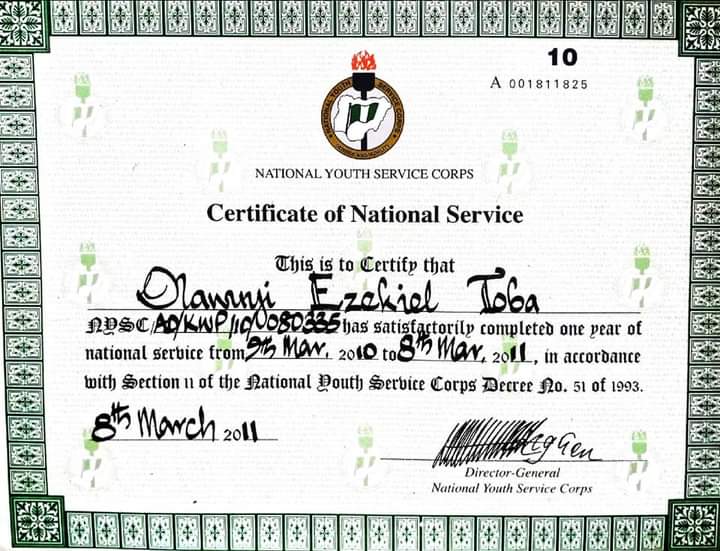 10
A 001811825
NATIONAL YOUTH SERVICE CORPS
NATIONAL YOUTH SERVICE CORPS
Certificate of National Service
This is to Certify that
Ezekiel Toba
NYSC/ has satisfactorily completed one year of
national service from 9th Mar. 2010 to 8th Mar. 2011, in accordance
with Section 11 of the National Youth Service Corps Decree No. 51 of 1993.
8th March 2011
Director-General
National Youth Service Corps